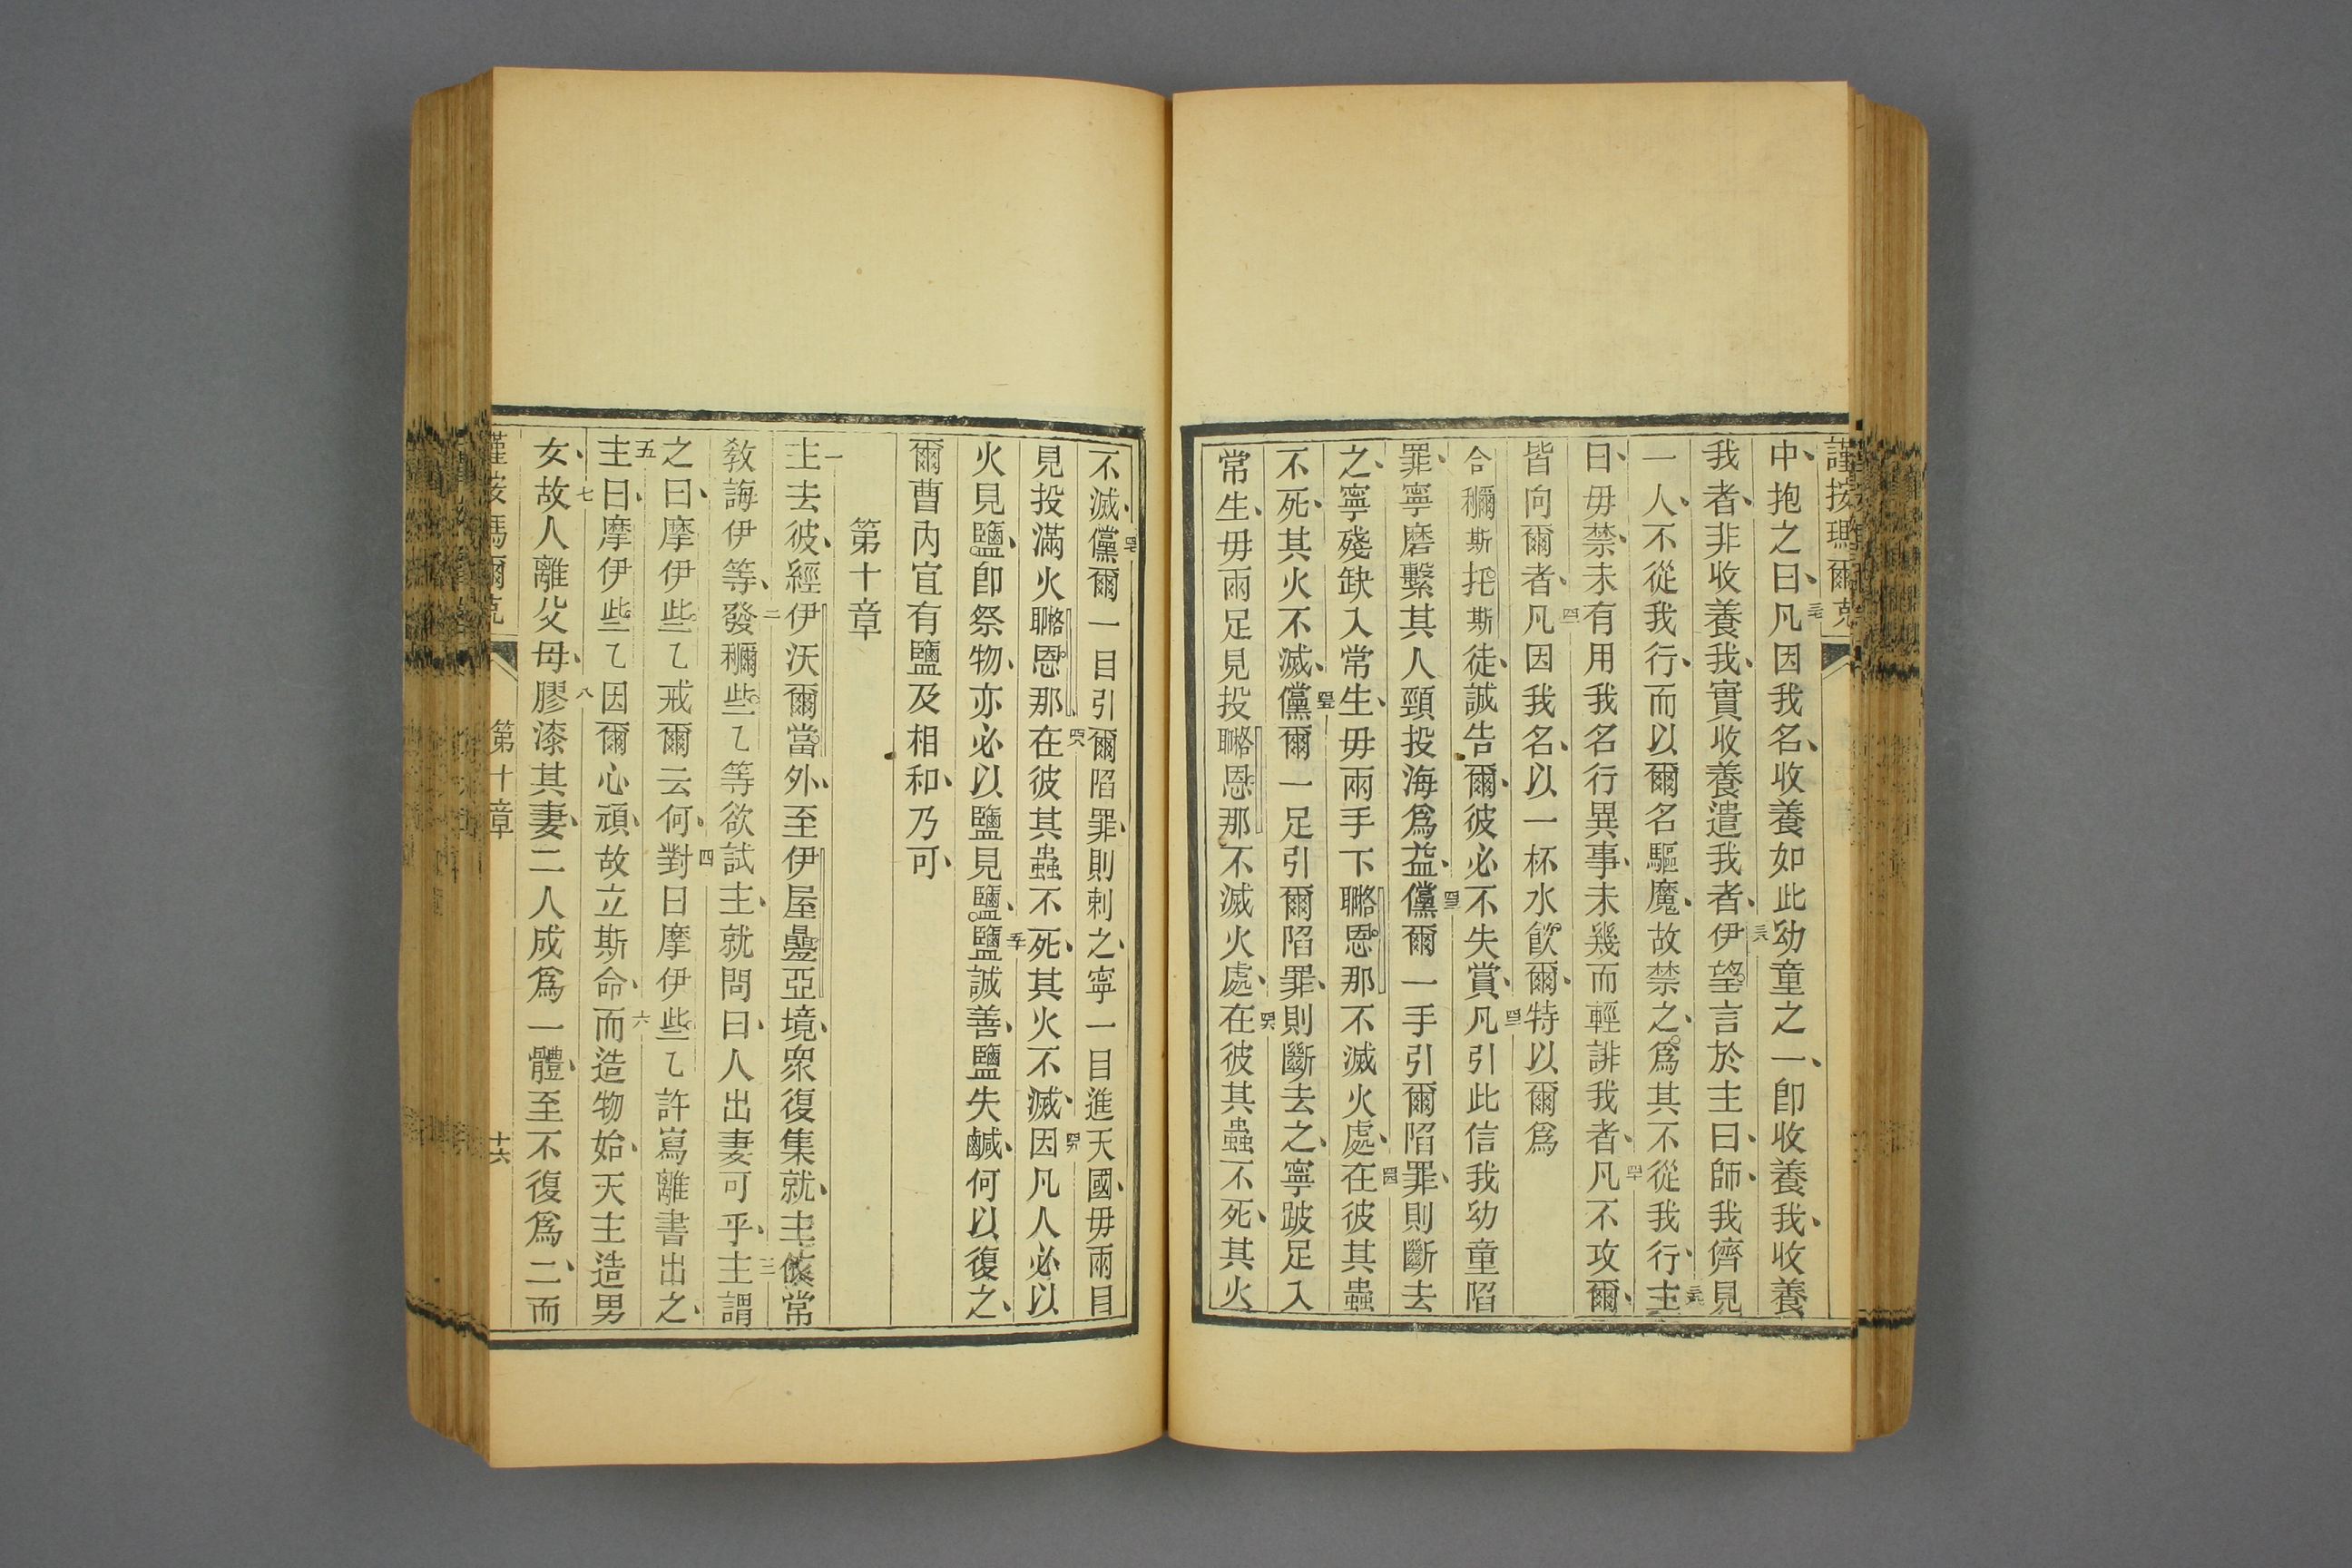 謹按瑪爾克
中、抱之曰、三七凡因我名、收養如此幼童之一、卽收養我、收養
我者、非收養我、實收養遣我者、三八伊望言於主曰、師、我儕見
一人、不從我行、而以爾名驅魔、故禁之、爲其不從我行、三九主
曰、毋禁、未有用我名行異事、未幾而輕誹我者、四十凡不攻爾、
皆向爾者、四一凡因我名、以一杯水飲爾、特以爾爲
合穪斯托斯徒、誠告爾、彼必不失賞、四二凡引此信我幼童陷
罪、寧磨繫其人頸投海爲益、四三儻爾一手引爾陷罪、則斷去
之、寧殘缺入常生、毋兩手下𦗖恩那不滅火處、四四在彼其蟲
不死、其火不滅、四五儻爾一足引爾陷罪、則斷去之、寧跛足入
常生、毋兩足見投𦗖恩那不滅火處、四六在彼其蟲不死、其火
不滅、四七儻爾一目引爾陷罪、則刺之、寧一目進天國、毋兩目
見投滿火𦗖恩那、四八在彼其蟲不死、其火不滅、四九因凡人必以
火見鹽、卽祭物、亦必以鹽見鹽、五十鹽誠善、鹽失鹹、何以復之、
爾曹內宜有鹽及相和、乃可、
第十章
一主去彼、經伊沃爾當外、至伊屋疊亞境、衆復集就、主依常
敎誨伊等、二發穪些乙等欲試主、就問曰、人出妻可乎、三主謂
之曰、摩伊些乙戒爾云何、四對曰摩伊些乙許寫離書出之、
五主曰、摩伊些乙因爾心頑、故立斯命、六而造物始、天主造男
女、七故人離父母、八膠漆其妻、二人成爲一體、至不復爲二、而
謹按瑪爾克
第十章
十六